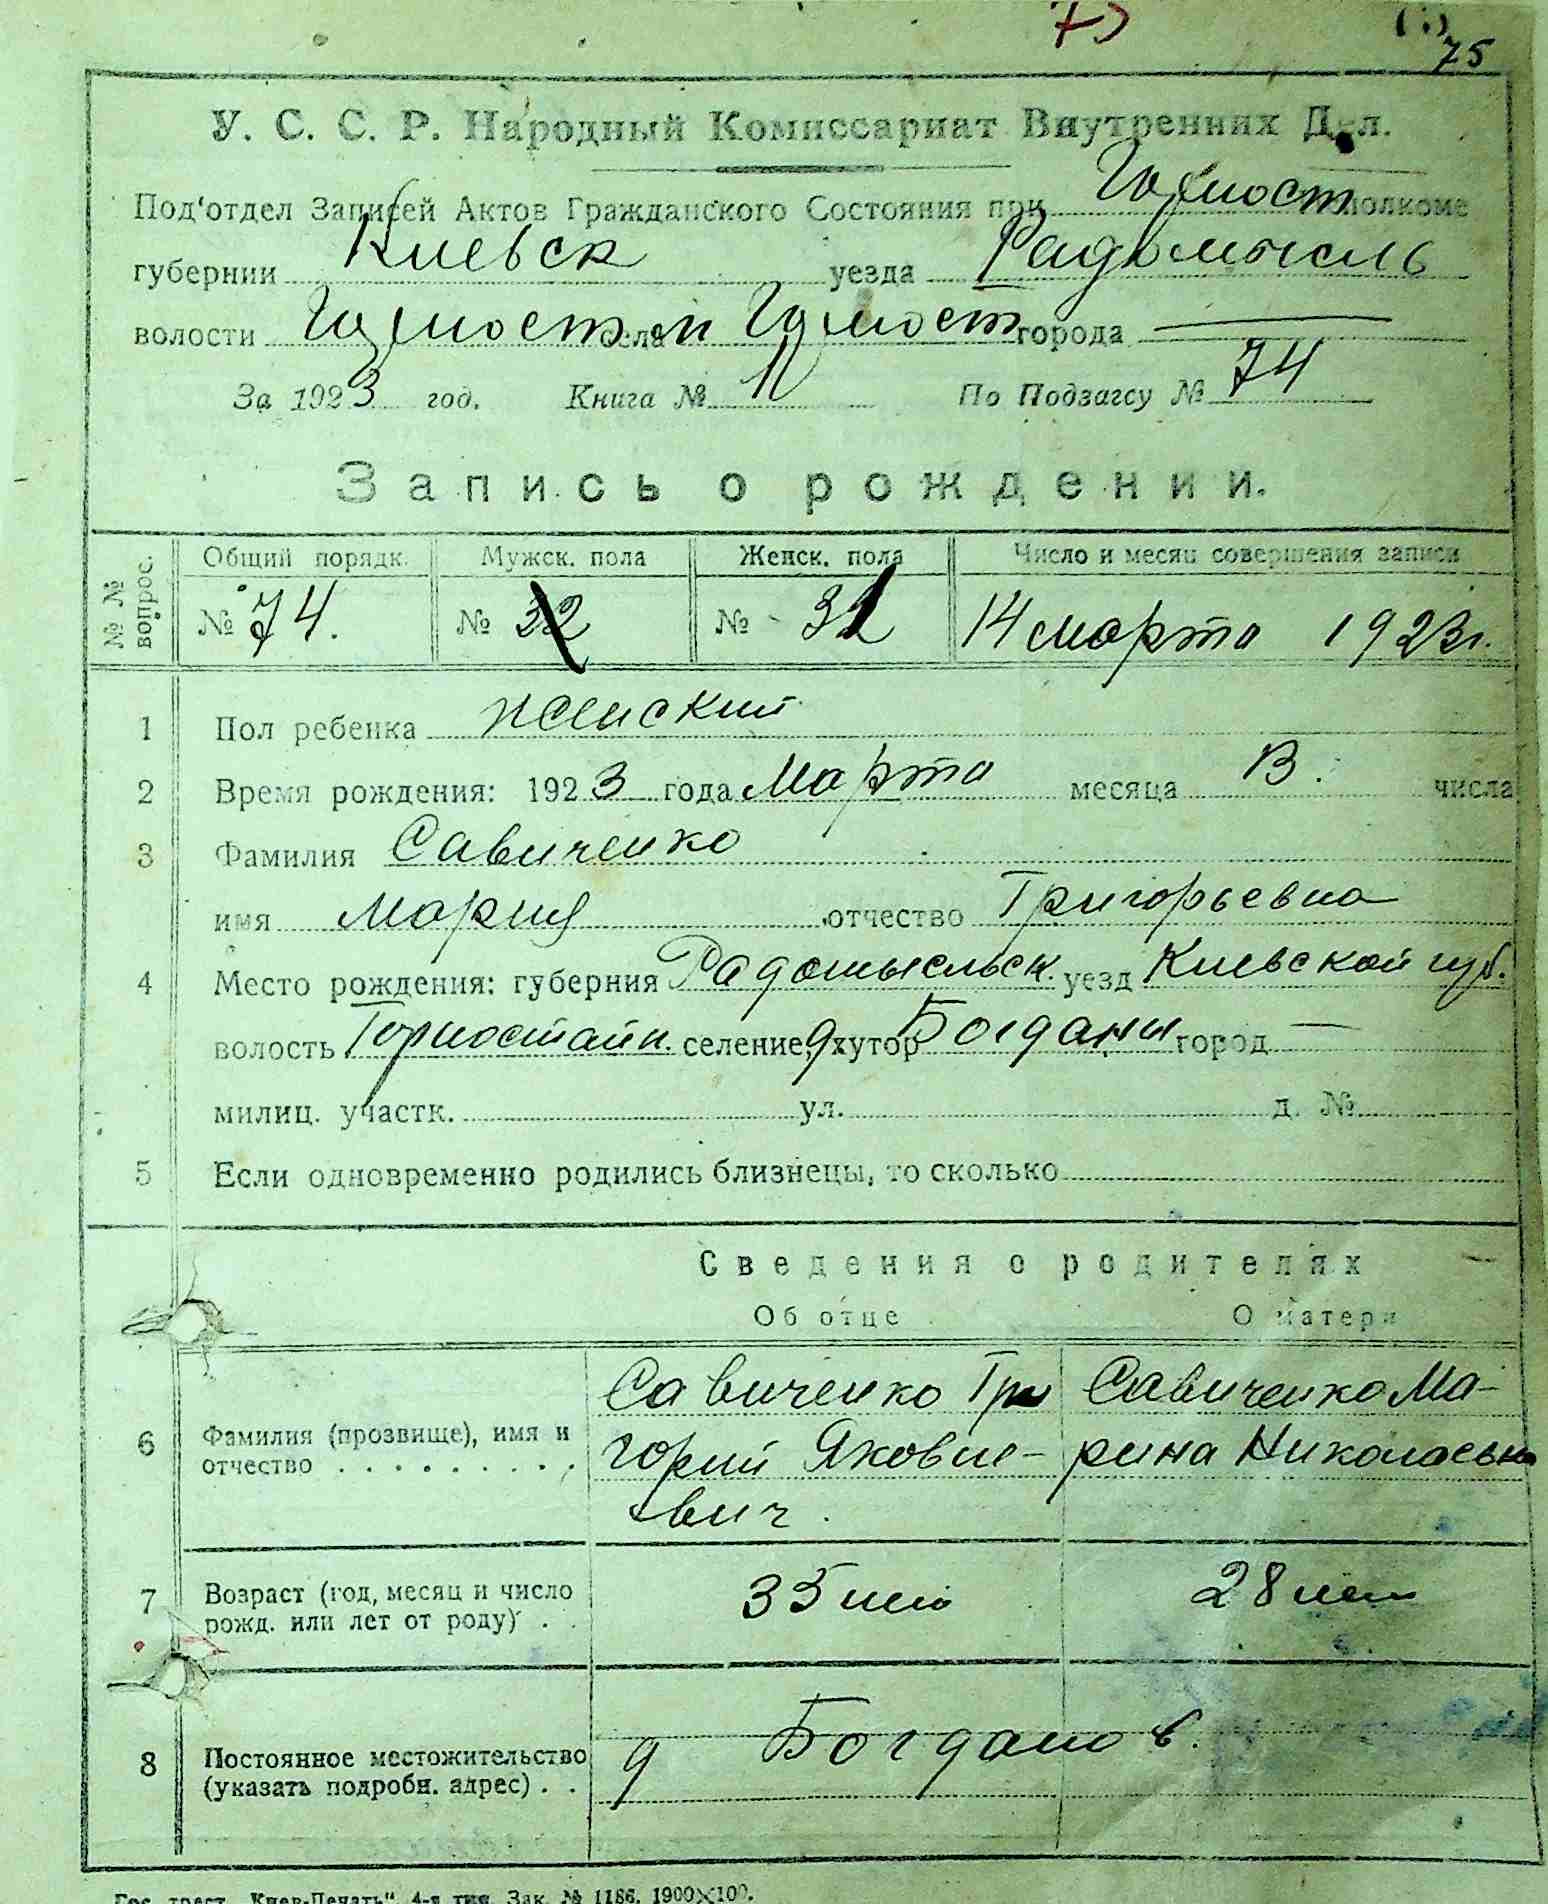 75
У. С. С. Р. Народный Комиссариат Внутренних Дел.
Под'отдел Записей Актов Гражданского Состояния при Горност исполкоме
губернии Киевск уезда Радомысль
волости Горностай села Горност города —
За 1923 год. Книга № 1 По Подзагсу № 74
Запись о рождении.
№ № вопрос. Общий порядк. Мужск. пола Женск. пола Число и месяц совершения записи
№ 74. № 32 № 32 14 марта 1923 г.
1 Пол ребенка женский
2 Время рождения: 1923 года Марта месяца 13. числа
3 Фамилия Савиченко
имя Мария отчество Григорьевна
4 Место рождения: губерния Радомысльск. уезд Киевской губ.
волость Горностайп. селение, хутор д Богданы город —
милиц. участк. ул. д. №
5 Если одновременно родились близнецы, то сколько
Сведения о родителях
Об отце О матери
Савиченко Гри Савиченко Ма-
6 Фамилия (прозвище), имя и отчество . . . . . . . . . горий Яковле- рина Николаевна
вич.
7 Возраст (год, месяц и число рожд. или лет от роду) . . 35 лет 28 лет
8 Постоянное местожительство (указать подробн. адрес) . . д Богданов.
Гос. трест „Киев-Печать" 4-я тип. Зак. № 1186. 1900×100.